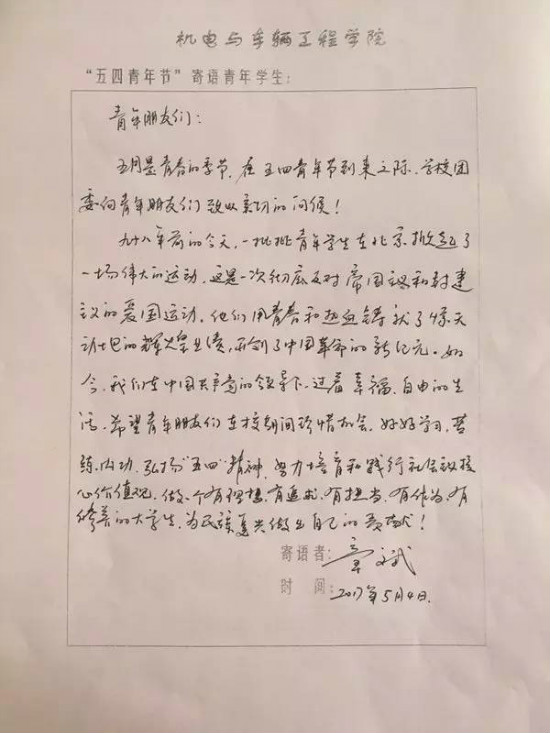 机电与车辆工程学院
“五四青年节”寄语青年学生：
青年朋友们：
五月是青春的季节，在五四青年节到来之际，学校团
委向青年朋友们致以亲切的问候！
九十八年前的今天，一批批青年学生在北京掀起了
一场伟大的运动，这是一次彻底反对帝国主义和封建
主义的爱国运动，他们用青春和热血铸就了惊天
动地的辉煌业绩，开创了中国革命的新纪元。如
今，我们在中国共产党的领导下，过着幸福、自由的生
活，希望青年朋友们在校期间珍惜机会，好好学习，苦
练内功，弘扬“五四”精神，努力培育和践行社会主义核
心价值观，做一个有理想，有追求，有担当，有作为，有
修养的大学生，为民族复兴做出自己的贡献！
寄语者：章斌
时 间：2017年5月4日.